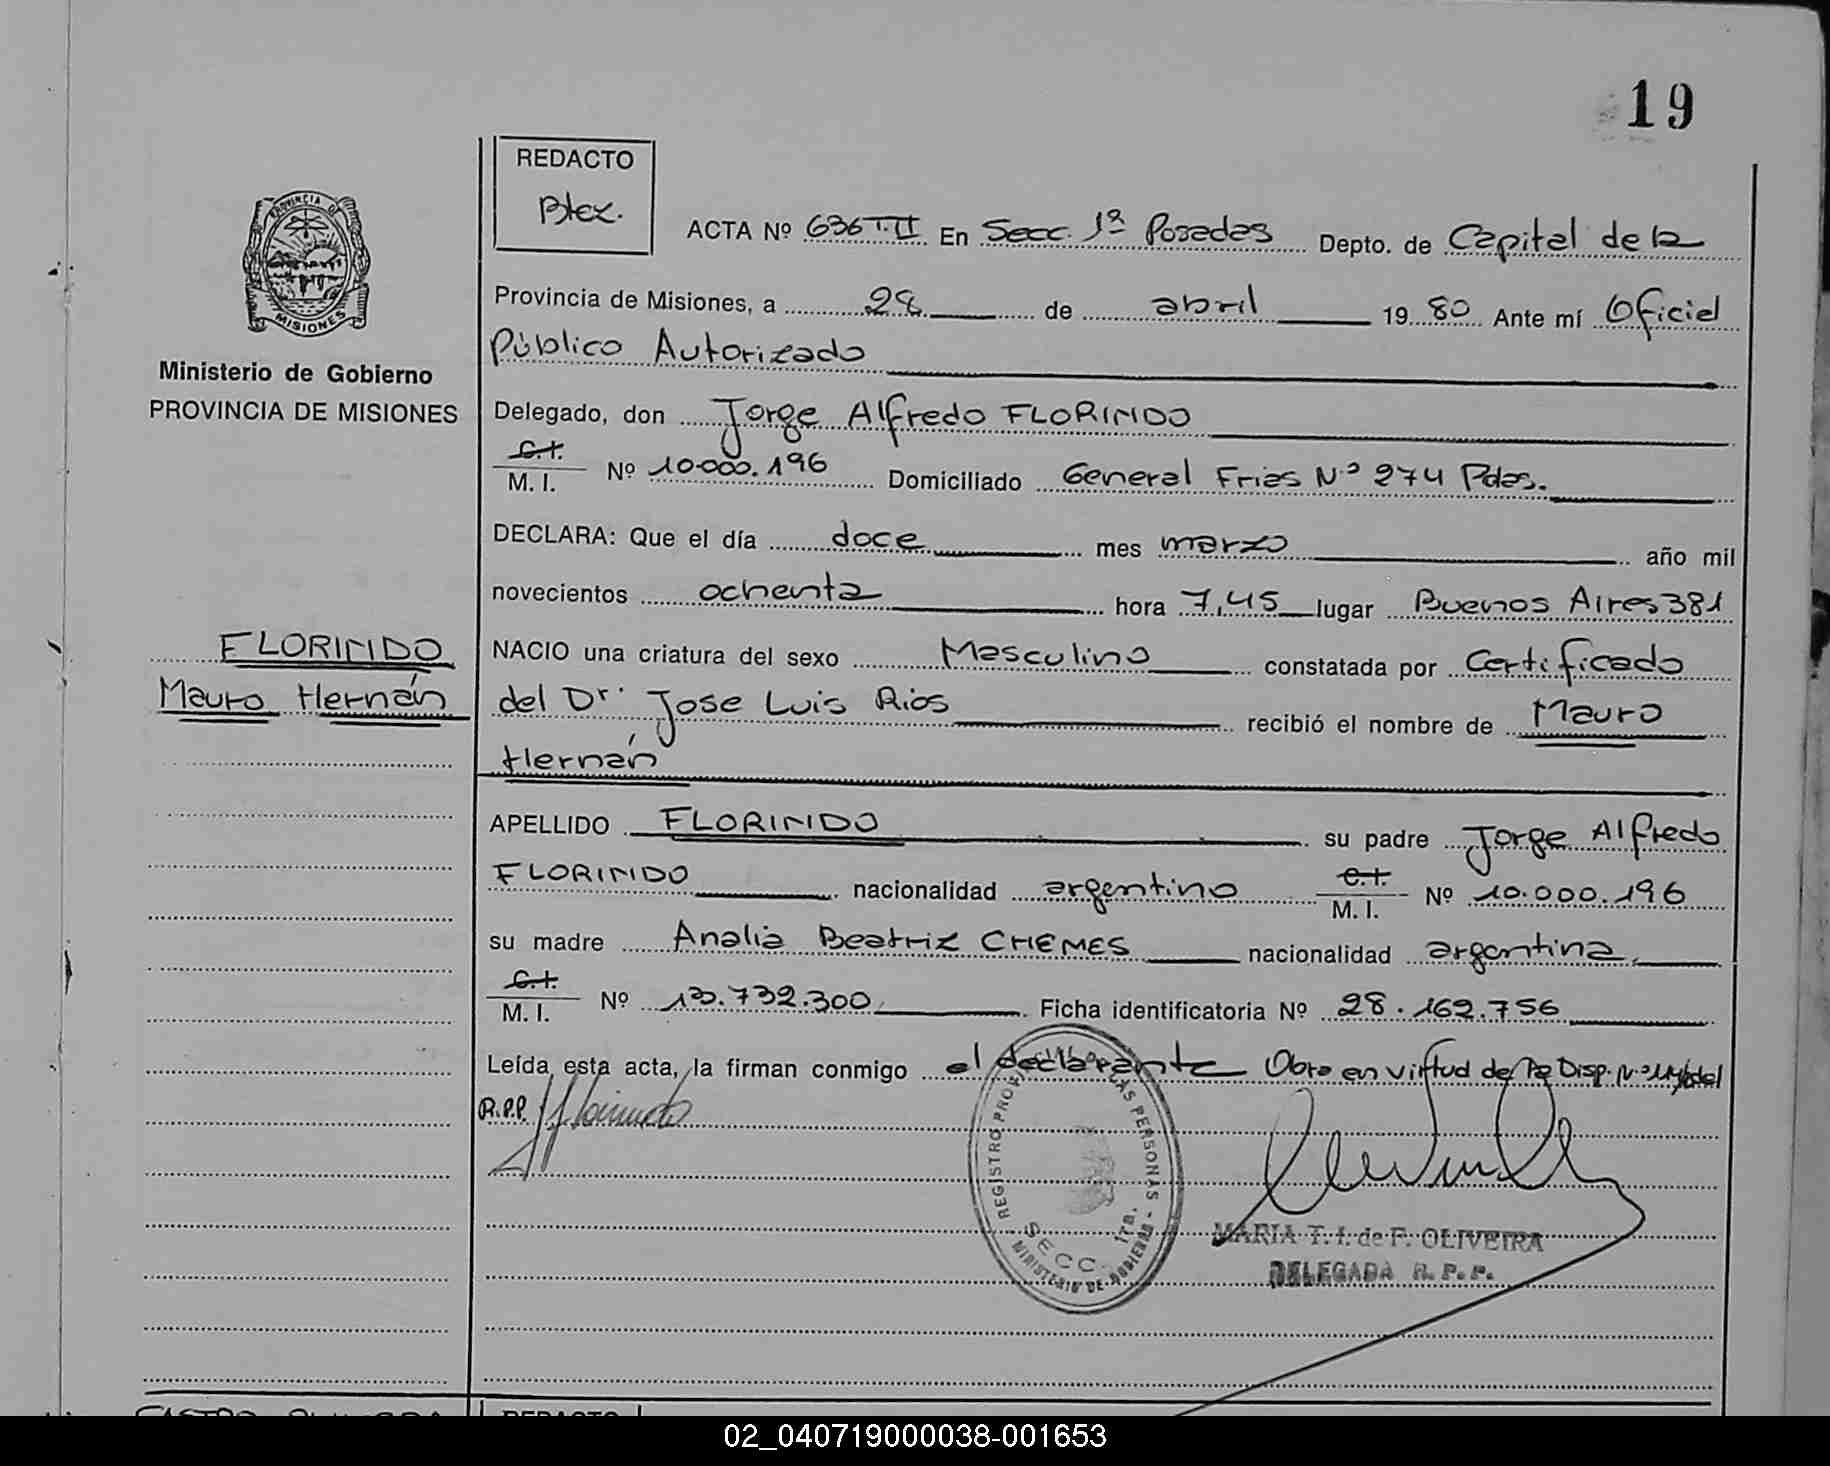 19
REDACTO
Btez.
ACTA Nº 636 T. II En Secc. 1ª Posadas Depto. de Capital de la
Provincia de Misiones, a 28 de abril 19 80 Ante mí Oficial
Público Autorizado
Delegado, don Jorge Alfredo FLORINDO
C.I.
M. I. Nº 10.000.196 Domiciliado General Frias Nº 274 Pdas.
DECLARA: Que el día doce mes marzo año mil
novecientos ochenta hora 7,45 lugar Buenos Aires 381
NACIO una criatura del sexo Masculino constatada por Certificado
del Dr. Jose Luis Rios recibió el nombre de Mauro
Hernán
APELLIDO FLORINDO su padre Jorge Alfredo
FLORINDO nacionalidad argentino C.I. M. I. Nº 10.000.196
su madre Analia Beatriz CHEMES nacionalidad argentina
C.I.
M. I. Nº 13.732.300 Ficha identificatoria Nº 28.162.756
Leída esta acta, la firman conmigo el declarante Obro en virtud de la Disp. Nº del
R.P.P.
REGISTRO PROV. DE LAS PERSONAS
SECC. 1ra.
MINISTERIO DE GOBIERNO
MARIA T. I. de F. OLIVEIRA
DELEGADA R. P. P.
PROVINCIA DE
MISIONES
Ministerio de Gobierno
PROVINCIA DE MISIONES
FLORINDO
Mauro Hernán
CASTRO
REDACTO
02_040719000038-001653